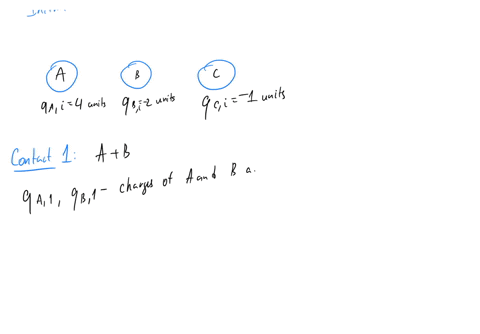 A B C
q_A,i = 4 units q_B,i = -2 units q_C,i = -1 units
Contact 1: A + B
q_A,1 , q_B,1 - charges of A and B a.